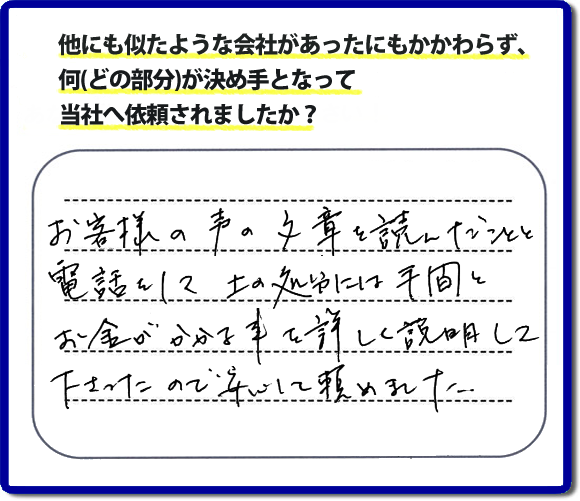 他にも似たような会社があったにもかかわらず、
何(どの部分)が決め手となって
当社へ依頼されましたか？
お客様の声の文章を読んだことと
電話をして土の処分には手間と
お金がかかる事を詳しく説明して
下さったので安心して頼めました。